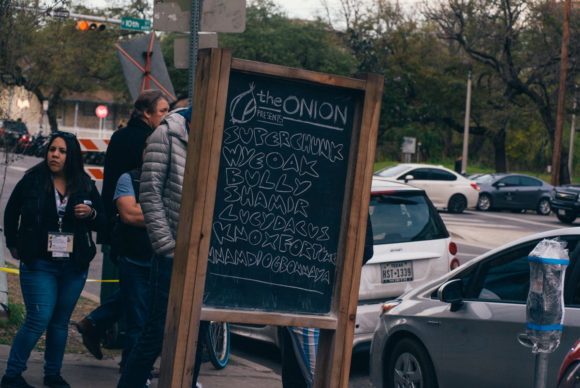 10th
the ONION
PRESENTS
SUPERCHUNK
WYE OAK
BULLY
SHAMIR
LUCY DACUS
KNOX FORTUNE
NNAMDI OGBONNAYA
TEXAS